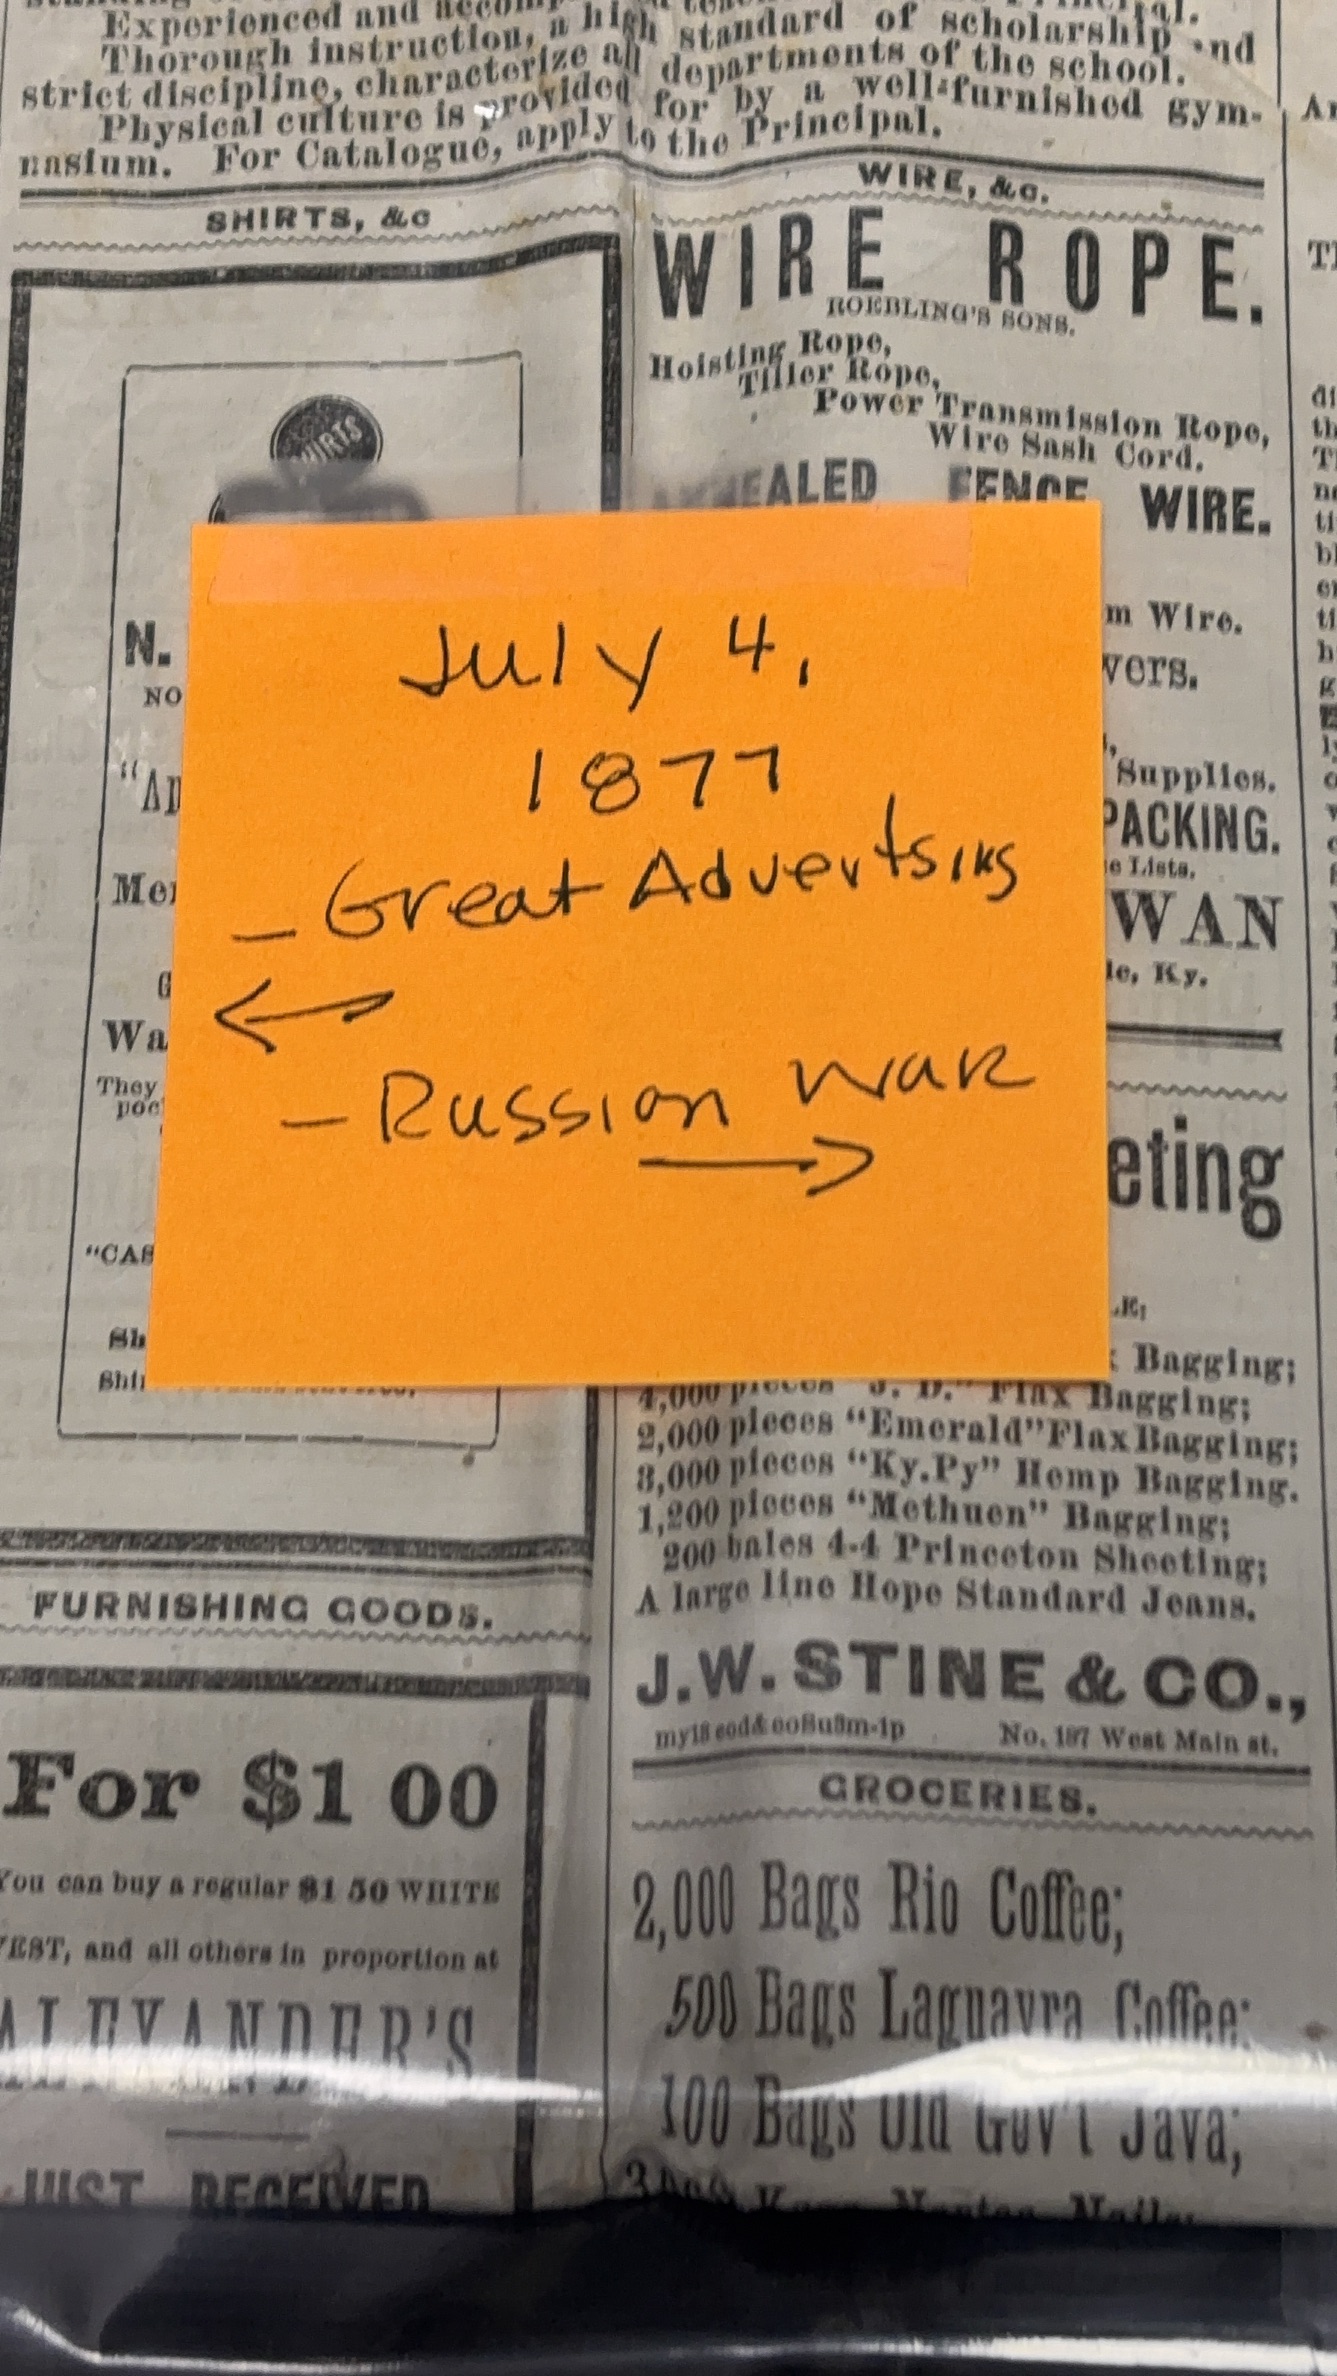 Experienced and
Thorough instruction, a high standard of scholarship and
strict discipline, characterize all departments of the school.
Physical culture is provided for by a well-furnished gym-
nasium. For Catalogue, apply to the Principal.
SHIRTS, &c
SHIRTS
N.
NO
Wa
They
"CAS
Sh
FURNISHING GOODS.
For $1 00
You can buy a regular $1 50 WHITE
VEST, and all others in proportion at
ALEXANDER'S
JUST RECEIVED
WIRE, &c.
WIRE ROPE.
ROEBLING'S SONS.
Hoisting Rope,
Tiller Rope,
Power Transmission Rope,
Wire Sash Cord.
FENCE WIRE.
m Wire.
vers.
Supplies.
PACKING.
e Lists.
WAN
le, Ky.
eting
LE:
Bagging;
4,000 pieces "J. D." Flax Bagging;
2,000 pieces "Emerald" Flax Bagging;
3,000 pieces "Ky.Py" Hemp Bagging.
1,200 pieces "Methuen" Bagging;
200 bales 4-4 Princeton Sheeting;
A large line Hope Standard Jeans.
J.W. STINE & CO.,
No. 197 West Main st.
GROCERIES.
2,000 Bags Rio Coffee;
500 Bags Laguayra Coffee;
100 Bags Old Gov't Java;
July 4,
1877
- Great Advertsing
←
- Russian War
→